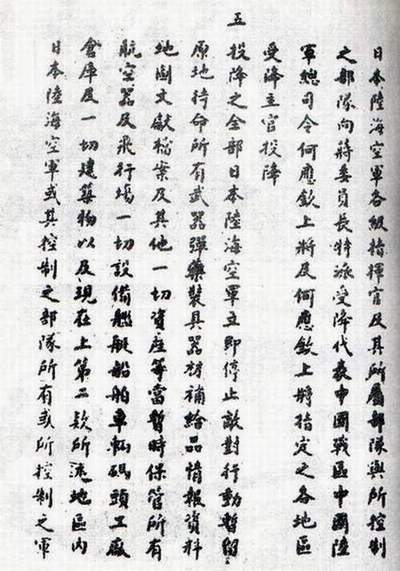 日本陸海空軍各級指揮官及其所屬部隊與所控制
之部隊向蔣委員長特派受降代表中國戰區中國陸
軍總司令何應欽上將及何應欽上將指定之各地區
受降主官投降
五 投降之全部日本陸海空軍立即停止敵對行動暫留
原地待命所有武器彈藥裝具器材補給品情報資料
地圖文獻檔案及其他一切資產等當暫時保管所有
航空器及飛行場一切設備艦艇船舶車輛碼頭工廠
倉庫及一切建築物以及現在上第二款所述地區內
日本陸海空軍或其控制之部隊所有或所控制之軍